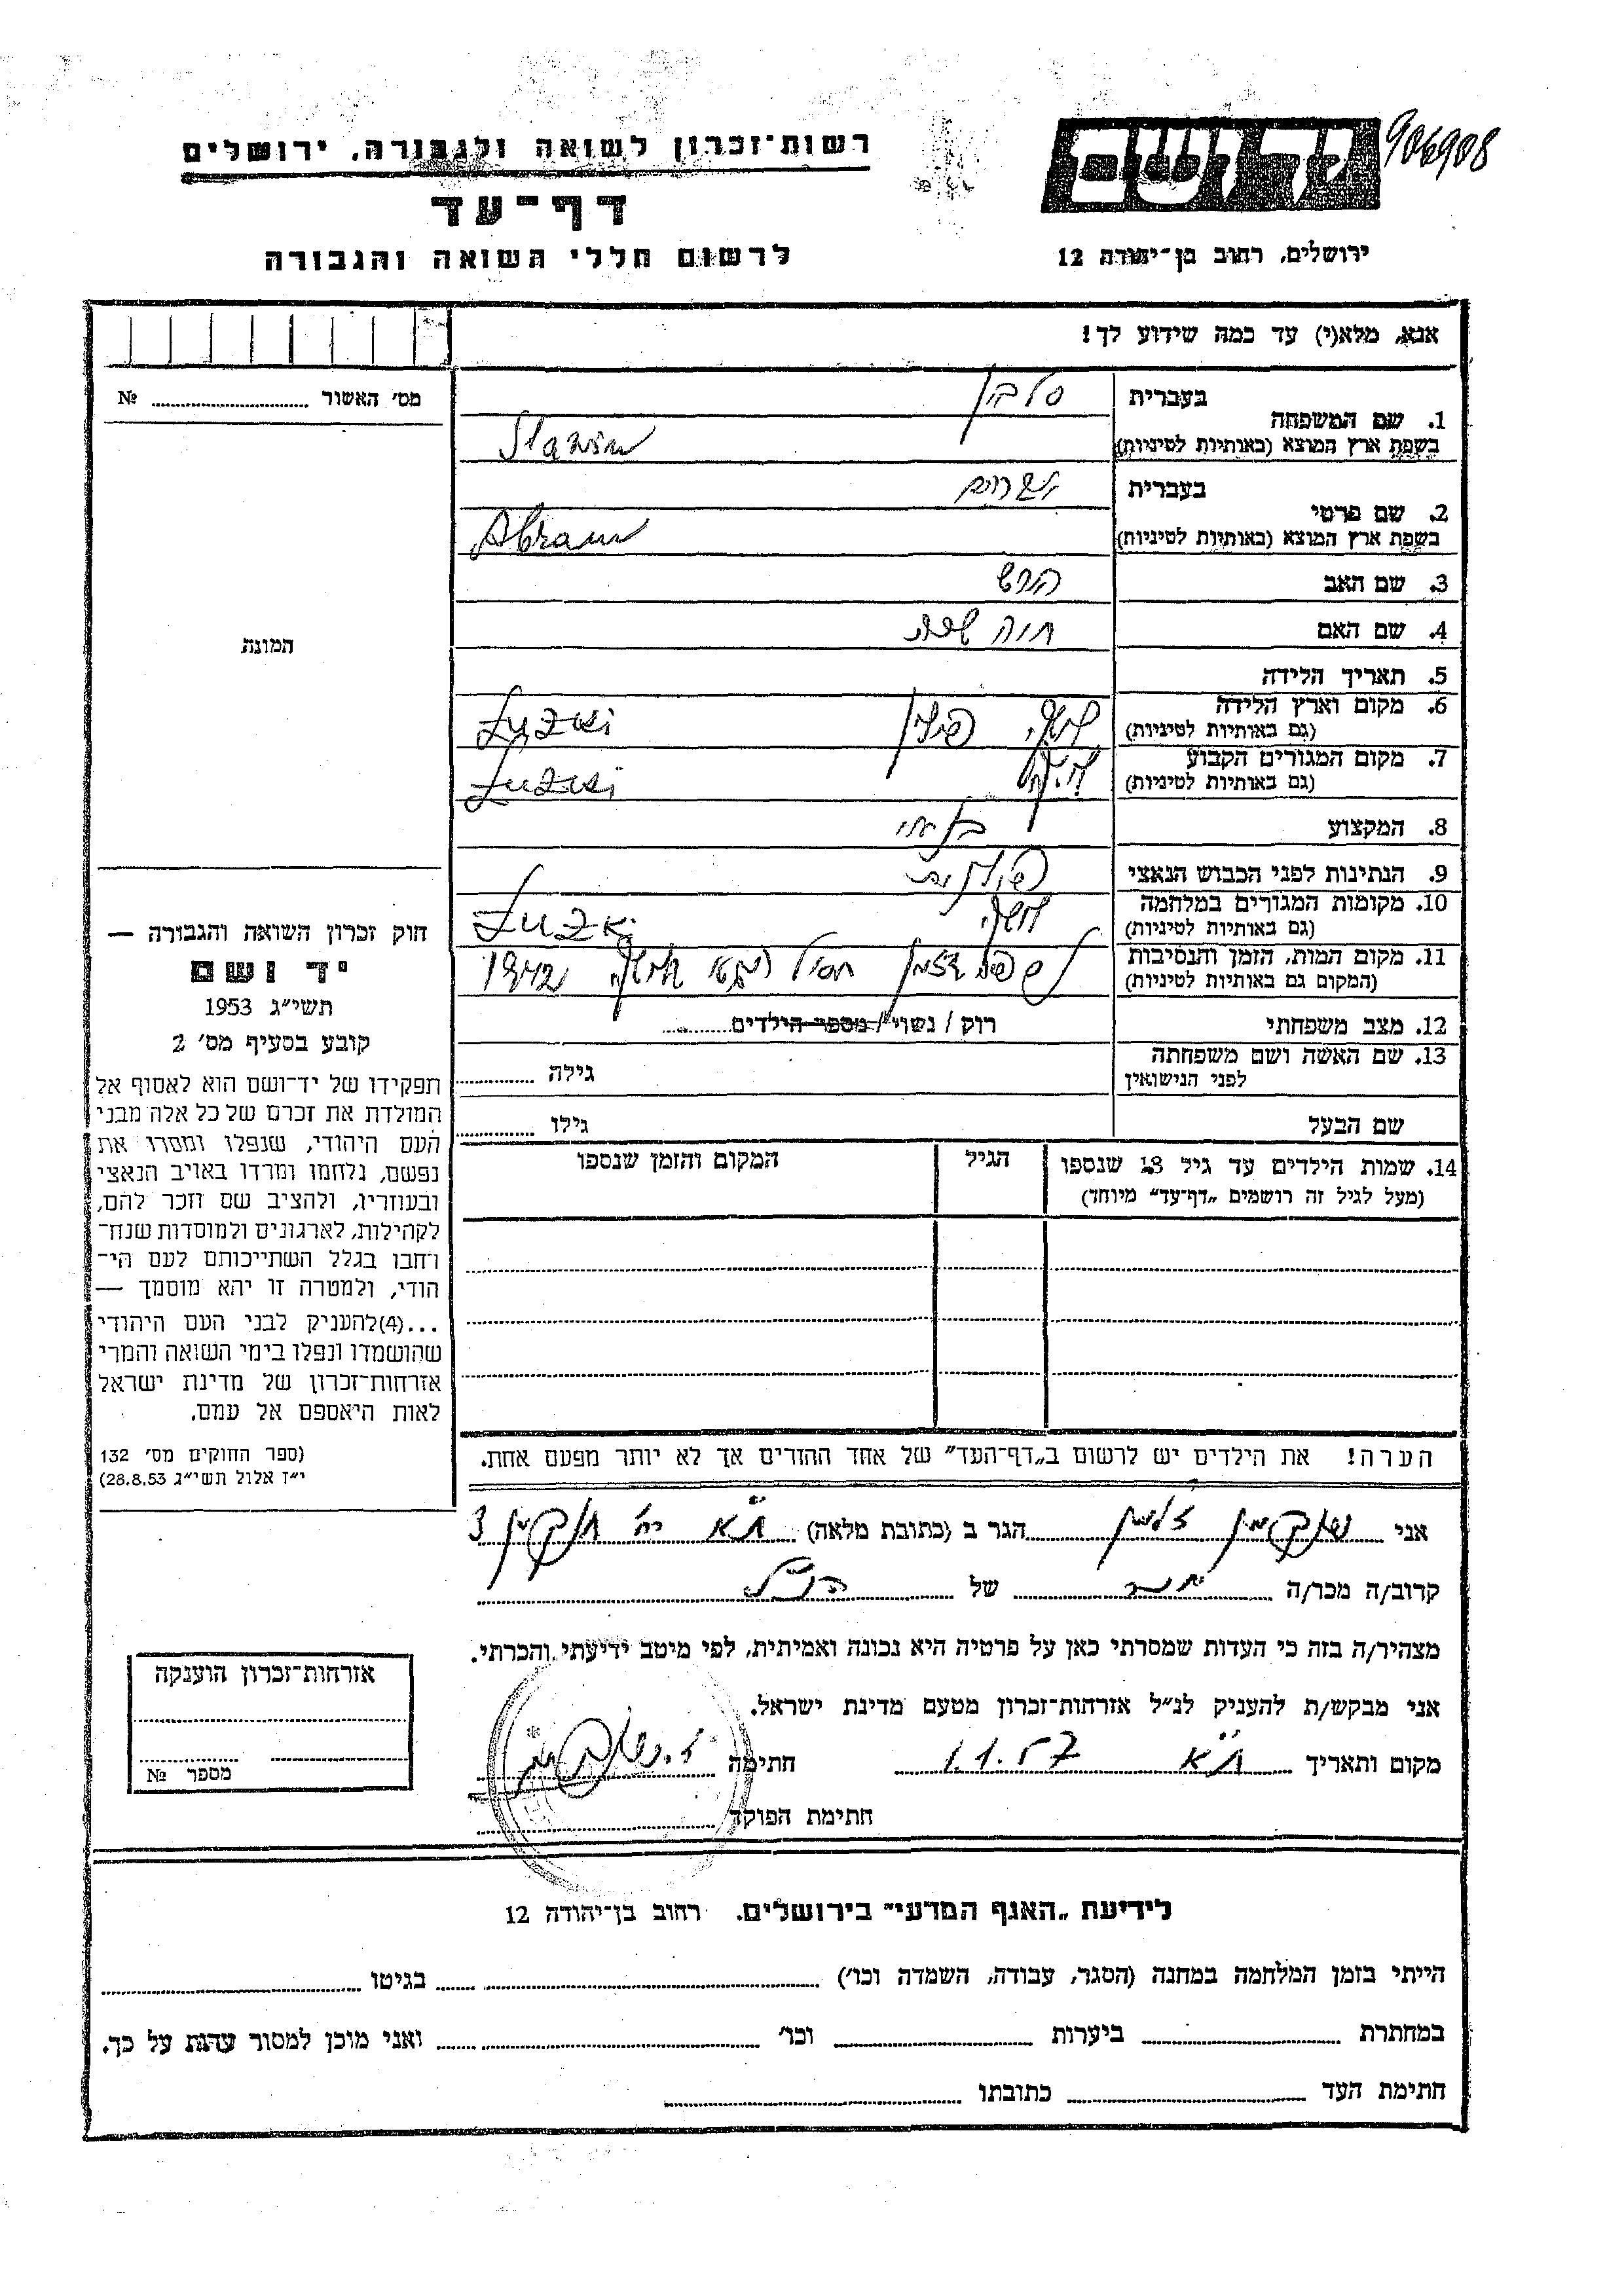 906908
יד ושם
רשות־זכרון לשואה ולגבורה, ירושלים
דף־עד
לרשום חללי השואה והגבורה
ירושלים, רחוב בן־יהודה 12
אנא, מלא(י) עד כמה שידוע לך!
מס׳ האשור № 
1. שם המשפחה
בעברית סלבין
בשפת ארץ המוצא (באותיות לטיניות) Slawin
2. שם פרטי
בעברית אברהם
בשפת ארץ המוצא (באותיות לטיניות) Abram
3. שם האב הירש
4. שם האם חוה
5. תאריך הלידה
6. מקום וארץ הלידה
(גם באותיות לטיניות) פולין Łużki
7. מקום המגורים הקבוע
(גם באותיות לטיניות) Łużki
8. המקצוע
9. הנתינות לפני הכבוש הנאצי פולנית
10. מקומות המגורים במלחמה
(גם באותיות לטיניות) Łużki
11. מקום המות, הזמן והנסיבות
(המקום גם באותיות לטיניות) חסול הגטו 1942
12. מצב משפחתי רוק / נשוי / מספר הילדים
13. שם האשה ושם משפחתה
לפני הנישואין גילה
שם הבעל גילו
14. שמות הילדים עד גיל 18 שנספו
(מעל לגיל זה רושמים „דף־עד״ מיוחד)
הגיל
המקום והזמן שנספו
הערה! את הילדים יש לרשום ב„דף־העד״ של אחד ההורים אך לא יותר מפעם אחת.
התמונה
חוק זכרון השואה והגבורה —
יד ושם
תשי״ג 1953
קובע בסעיף מס׳ 2
תפקידו של יד־ושם הוא לאסוף אל
המולדת את זכרם של כל אלה מבני
העם היהודי, שנפלו ומסרו את
נפשם, נלחמו ומרדו באויב הנאצי
ובעוזריו, ולהציב שם וזכר להם,
לקהילות, לארגונים ולמוסדות שנח־
רחבו בגלל השתייכותם לעם הי־
הודי, ולמטרה זו יהא מוסמך —
...(4)להעניק לבני העם היהודי
שהושמדו ונפלו בימי השואה והמרי
אזרחות־זכרון של מדינת ישראל
לאות היאספם אל עמם.
(ספר החוקים מס׳ 132
י״ז אלול תשי״ג 28.8.53)
אני הגר ב (כתובת מלאה) ת״א 3
קרוב/ה מכר/ה של הנ״ל
מצהיר/ה בזה כי העדות שמסרתי כאן על פרטיה היא נכונה ואמיתית, לפי מיטב ידיעתי והכרתי.
אני מבקש/ת להעניק לנ״ל אזרחות־זכרון מטעם מדינת ישראל.
מקום ותאריך ת״א 1.1.57 חתימה
חתימת הפוקד
אזרחות־זכרון הוענקה
מספר №
לידיעת „האגף המדעי״ בירושלים. רחוב בן־יהודה 12
הייתי בזמן המלחמה במחנה (הסגר, עבודה, השמדה וכו׳) בגיטו
במחתרת ביערות וכו׳ ואני מוכן למסור עדות על כך.
חתימת העד כתובתו